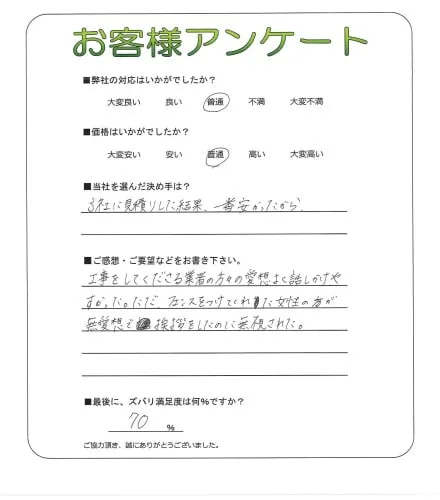 お客様アンケート
■弊社の対応はいかがでしたか?
大変良い 良い 普通 不満 大変不満
■価格はいかがでしたか?
大変安い 安い 普通 高い 大変高い
■当社を選んだ決め手は?
3社に見積りした結果、一番安かったから
■ご感想・ご要望などをお書き下さい。
工事をしてくださる業者の方々の愛想よく話しかけや
すかった。ただ、フェンスをつけてくれた女性の方が
無愛想で挨拶をしたのに無視された。
■最後に、ズバリ満足度は何%ですか?
70 %
ご協力頂き、誠にありがとうございました。